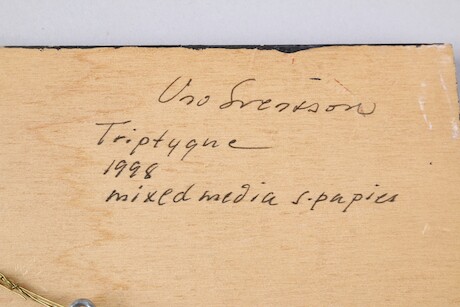 Uno Svensson
Triptyque
1998
mixed media s. papier